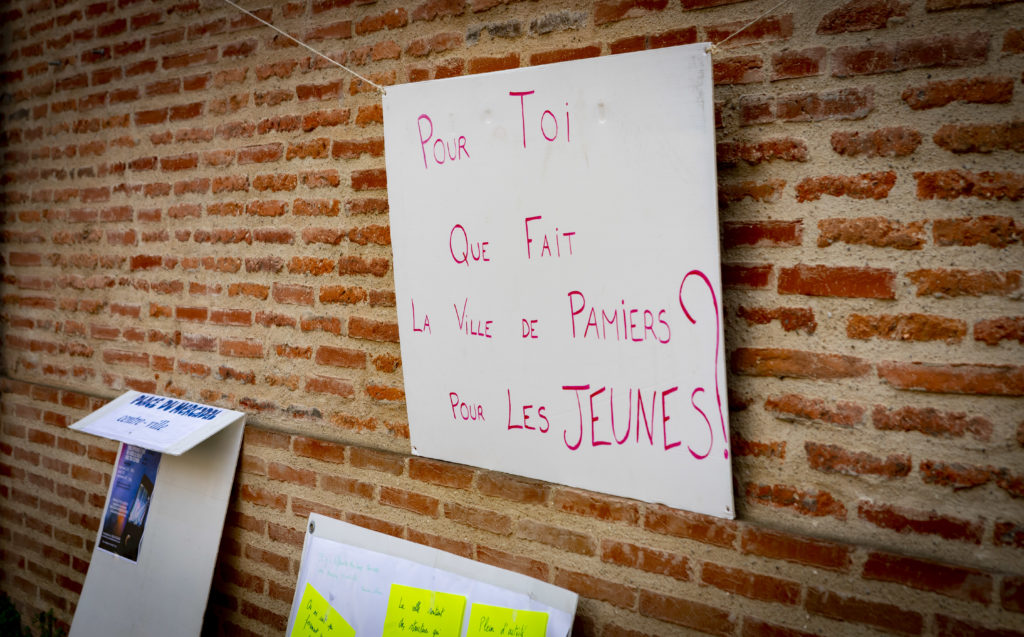 Pour Toi
Que Fait
La Ville de Pamiers
pour Les JEUNES ?
PLACE DU MERCADAL
centre-ville
La ville soutient
Plein d'activité